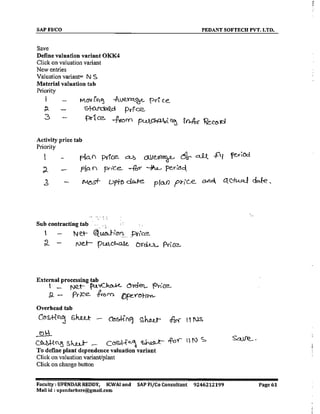 SAP FI/CO PEDANT SOFTECH PVT. LTD.
Save
Define valuation variant OKK4
Click on valuation variant
New entries
Valuation variant= N S
Material valuation tab
Priority
1 – Moving Average price
2 – Standard price
3 – price from purchasing info Record
Activity price tab
Priority
1 – plan price as average of all fy period
2 – plan price for the period
3 – Most upto date plan price and actual date.
Sub contracting tab
1 – Net Quotation price
2 – Net purchase order price
External processing tab
1 – Net purchase order price
2 – Price from operation
Overhead tab
Costing sheet – Costing sheet for 11 NS
OH
Costing sheet – Costing sheet for 11 N S Save.
To define plant dependence valuation variant
Click on valuation variant/plant
Click on change button
Faculty: UPENDAR REDDY, ICWAI and SAP Fi/Co Consultant 9246212199 Page 61
Mail id : upendarhere@gmail.com